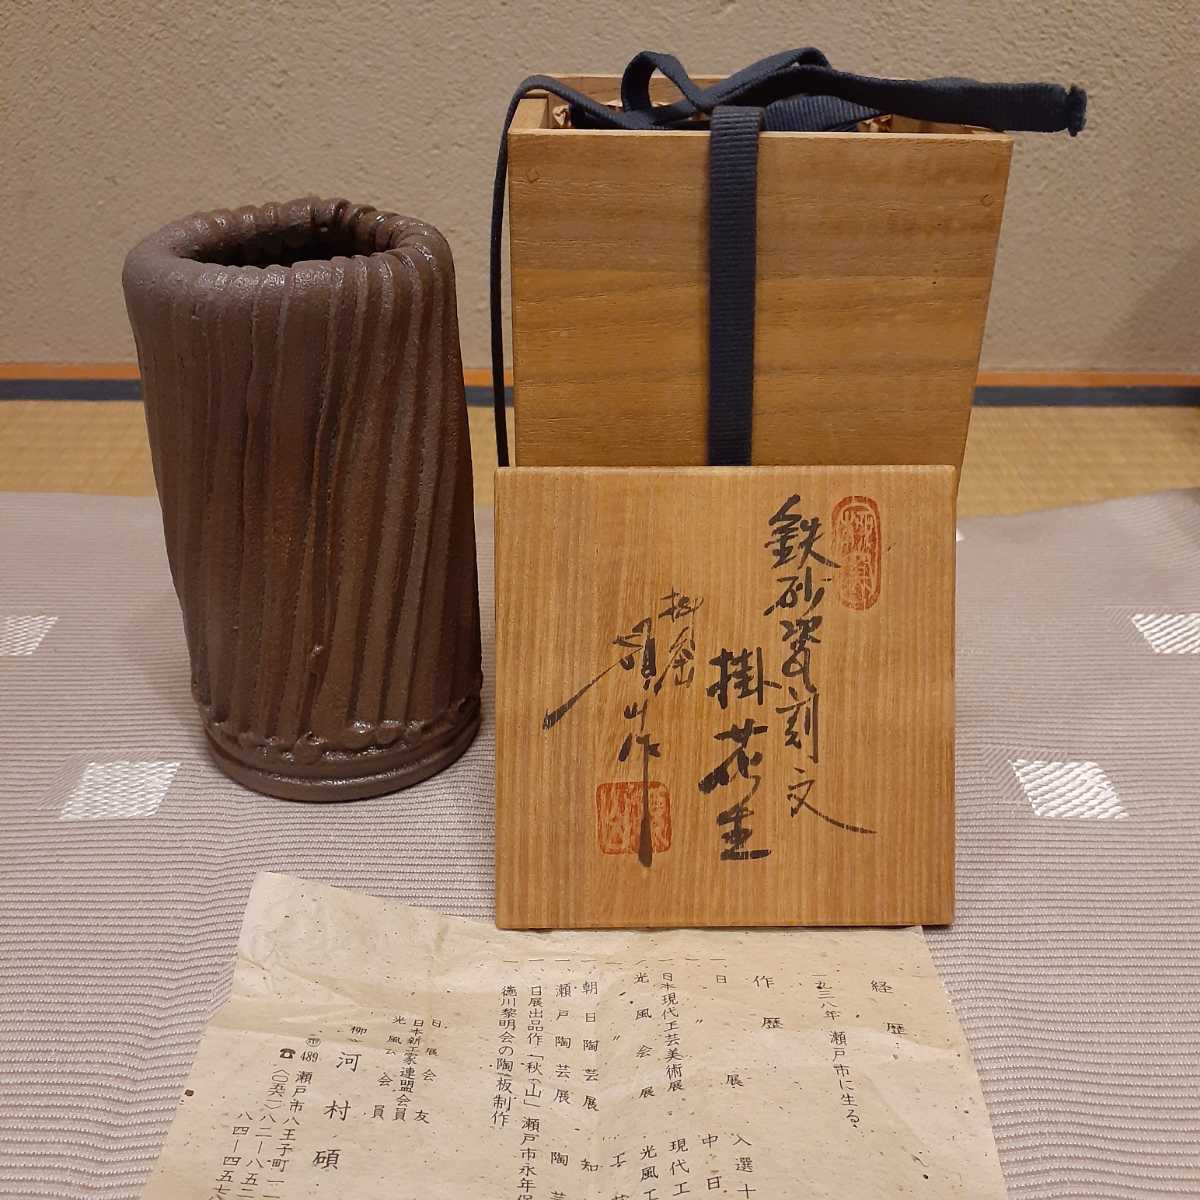 鉄砂瓷刻文
掛花生
柳窯
碩山作
経歴
一九三八年 瀬戸市に生る
作歴
一日展 入選十
一 〃 中日
日本現代工芸美術展 現代工
光風会展 光風工
〃 工芸
一、朝日陶芸展 知
一、瀬戸陶芸展 陶芸
一、日展出品作「秋山」瀬戸市永年保
一、徳川黎明会の陶板制作
日展会友
日本新工芸家連盟会員
光風会会員
柳 河村碩
〒489 瀬戸市八王子町一一
☎〈〇五六一〉八二―八五二
八四―四五七八